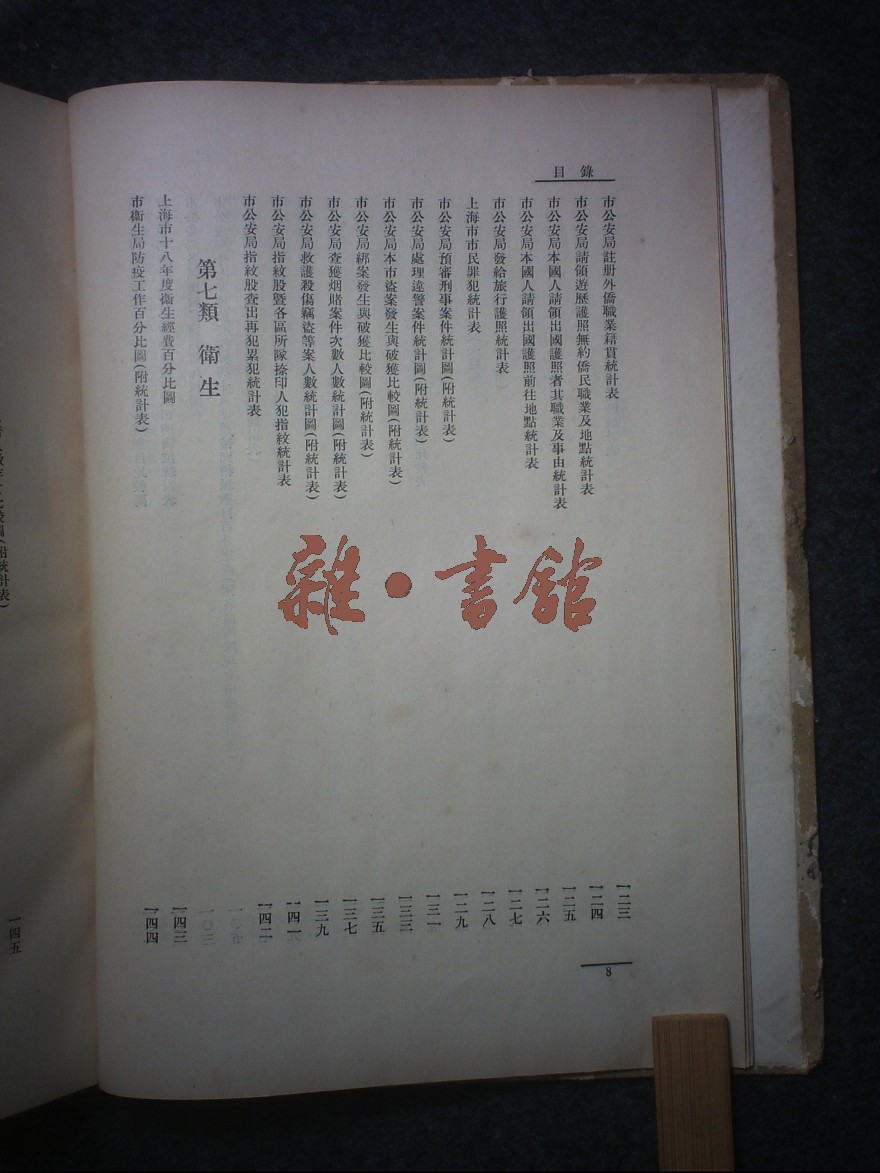 目錄
市公安局註册外僑職業籍貫統計表 一二三
市公安局請領遊歷護照無約僑民職業及地點統計表 一二四
市公安局本國人請領出國護照者其職業及事由統計表 一二五
市公安局本國人請領出國護照前往地點統計表 一二六
市公安局發給旅行護照統計表 一二七
上海市市民罪犯統計表 一二八
市公安局預審刑事案件統計圖(附統計表) 一二九
市公安局處理違警案件統計圖(附統計表) 一三一
市公安局本市盜案發生與破獲比較圖(附統計表) 一三三
市公安局綁案發生與破獲比較圖(附統計表) 一三五
市公安局查獲烟賭案件次數人數統計圖(附統計表) 一三七
市公安局救護殺傷竊盜等案人數統計圖(附統計表) 一三九
市公安局指紋股暨各區所隊捺印人犯指紋統計表 一四一
市公安局指紋股查出再犯累犯統計表 一四二
第七類 衛生
上海市十八年度衛生經費百分比圖 一四三
市衛生局防疫工作百分比圖(附統計表) 一四四
8
比較圖(附統計表) 一四五
雜·書館